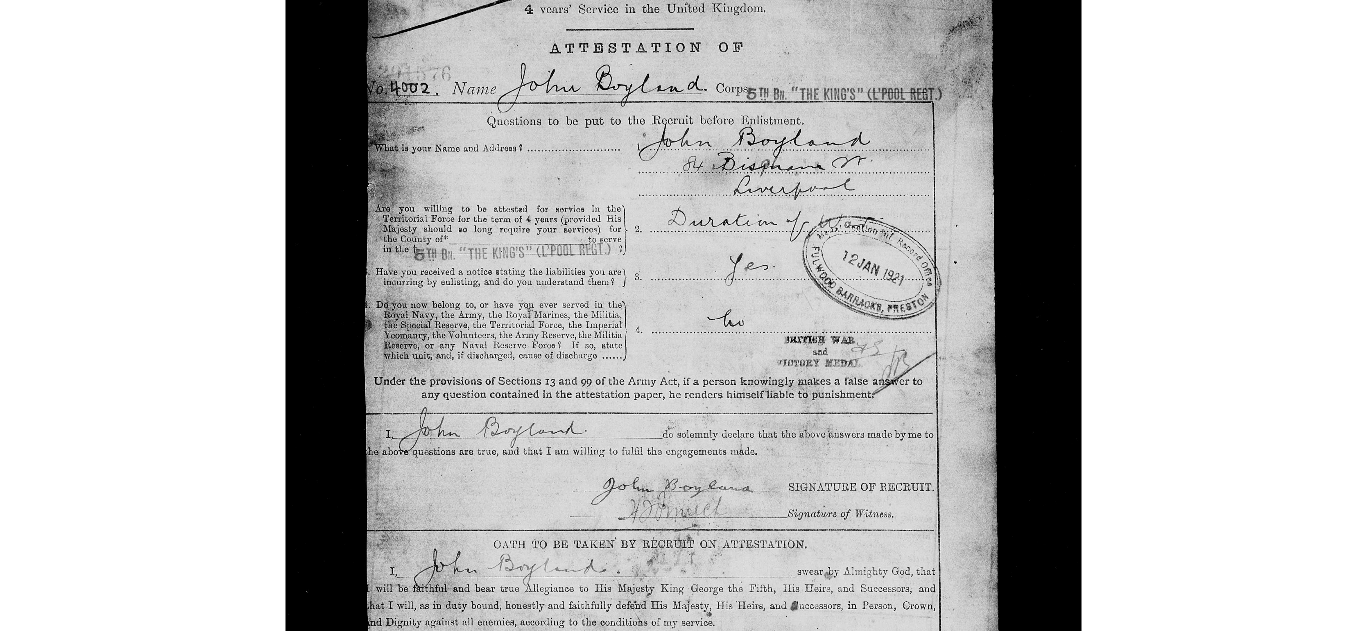 4 years' Service in the United Kingdom.
ATTESTATION OF
No. 4002. Name John Boyland. Corps 5TH BN. "THE KING'S" (L'POOL REGT.)
Questions to be put to the Recruit before Enlistment.
What is your Name and Address? John Boyland
84
Liverpool
Are you willing to be attested for service in the
Territorial Force for the term of 4 years (provided His
Majesty should so long require your services) for
the County of* to serve
in the 5TH BN. "THE KING'S" (L'POOL REGT.) ?
2. Duration of
Record Office
12 JAN 1921
FULWOOD BARRACKS, PRESTON
Have you received a notice stating the liabilities you are
incurring by enlisting, and do you understand them?
3. Yes.
Do you now belong to, or have you ever served in the
Royal Navy, the Army, the Royal Marines, the Militia,
the Special Reserve, the Territorial Force, the Imperial
Yeomanry, the Volunteers, the Army Reserve, the Militia
Reserve, or any Naval Reserve Force? If so, state
which unit, and, if discharged, cause of discharge ......
4. No
BRITISH WAR
and
VICTORY MEDAL
Under the provisions of Sections 13 and 99 of the Army Act, if a person knowingly makes a false answer to
any question contained in the attestation paper, he renders himself liable to punishment.
I, John Boyland. do solemnly declare that the above answers made by me to
he above questions are true, and that I am willing to fulfil the engagements made.
John Boyland SIGNATURE OF RECRUIT.
Signature of Witness.
OATH TO BE TAKEN BY RECRUIT ON ATTESTATION.
I, John Boyland. swear by Almighty God, that
I will be faithful and bear true Allegiance to His Majesty King George the Fifth, His Heirs, and Successors, and
hat I will, as in duty bound, honestly and faithfully defend His Majesty, His Heirs, and Successors, in Person, Crown,
nd Dignity against all enemies, according to the conditions of my service.